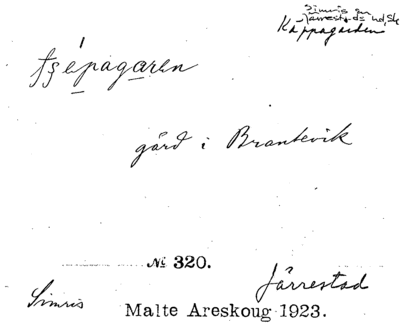 Simris sn
Järrestads hd, Sk
Käppagården
gård i Brantevik
№ 320.
Simris
Järrestad
Malte Areskoug 1923.